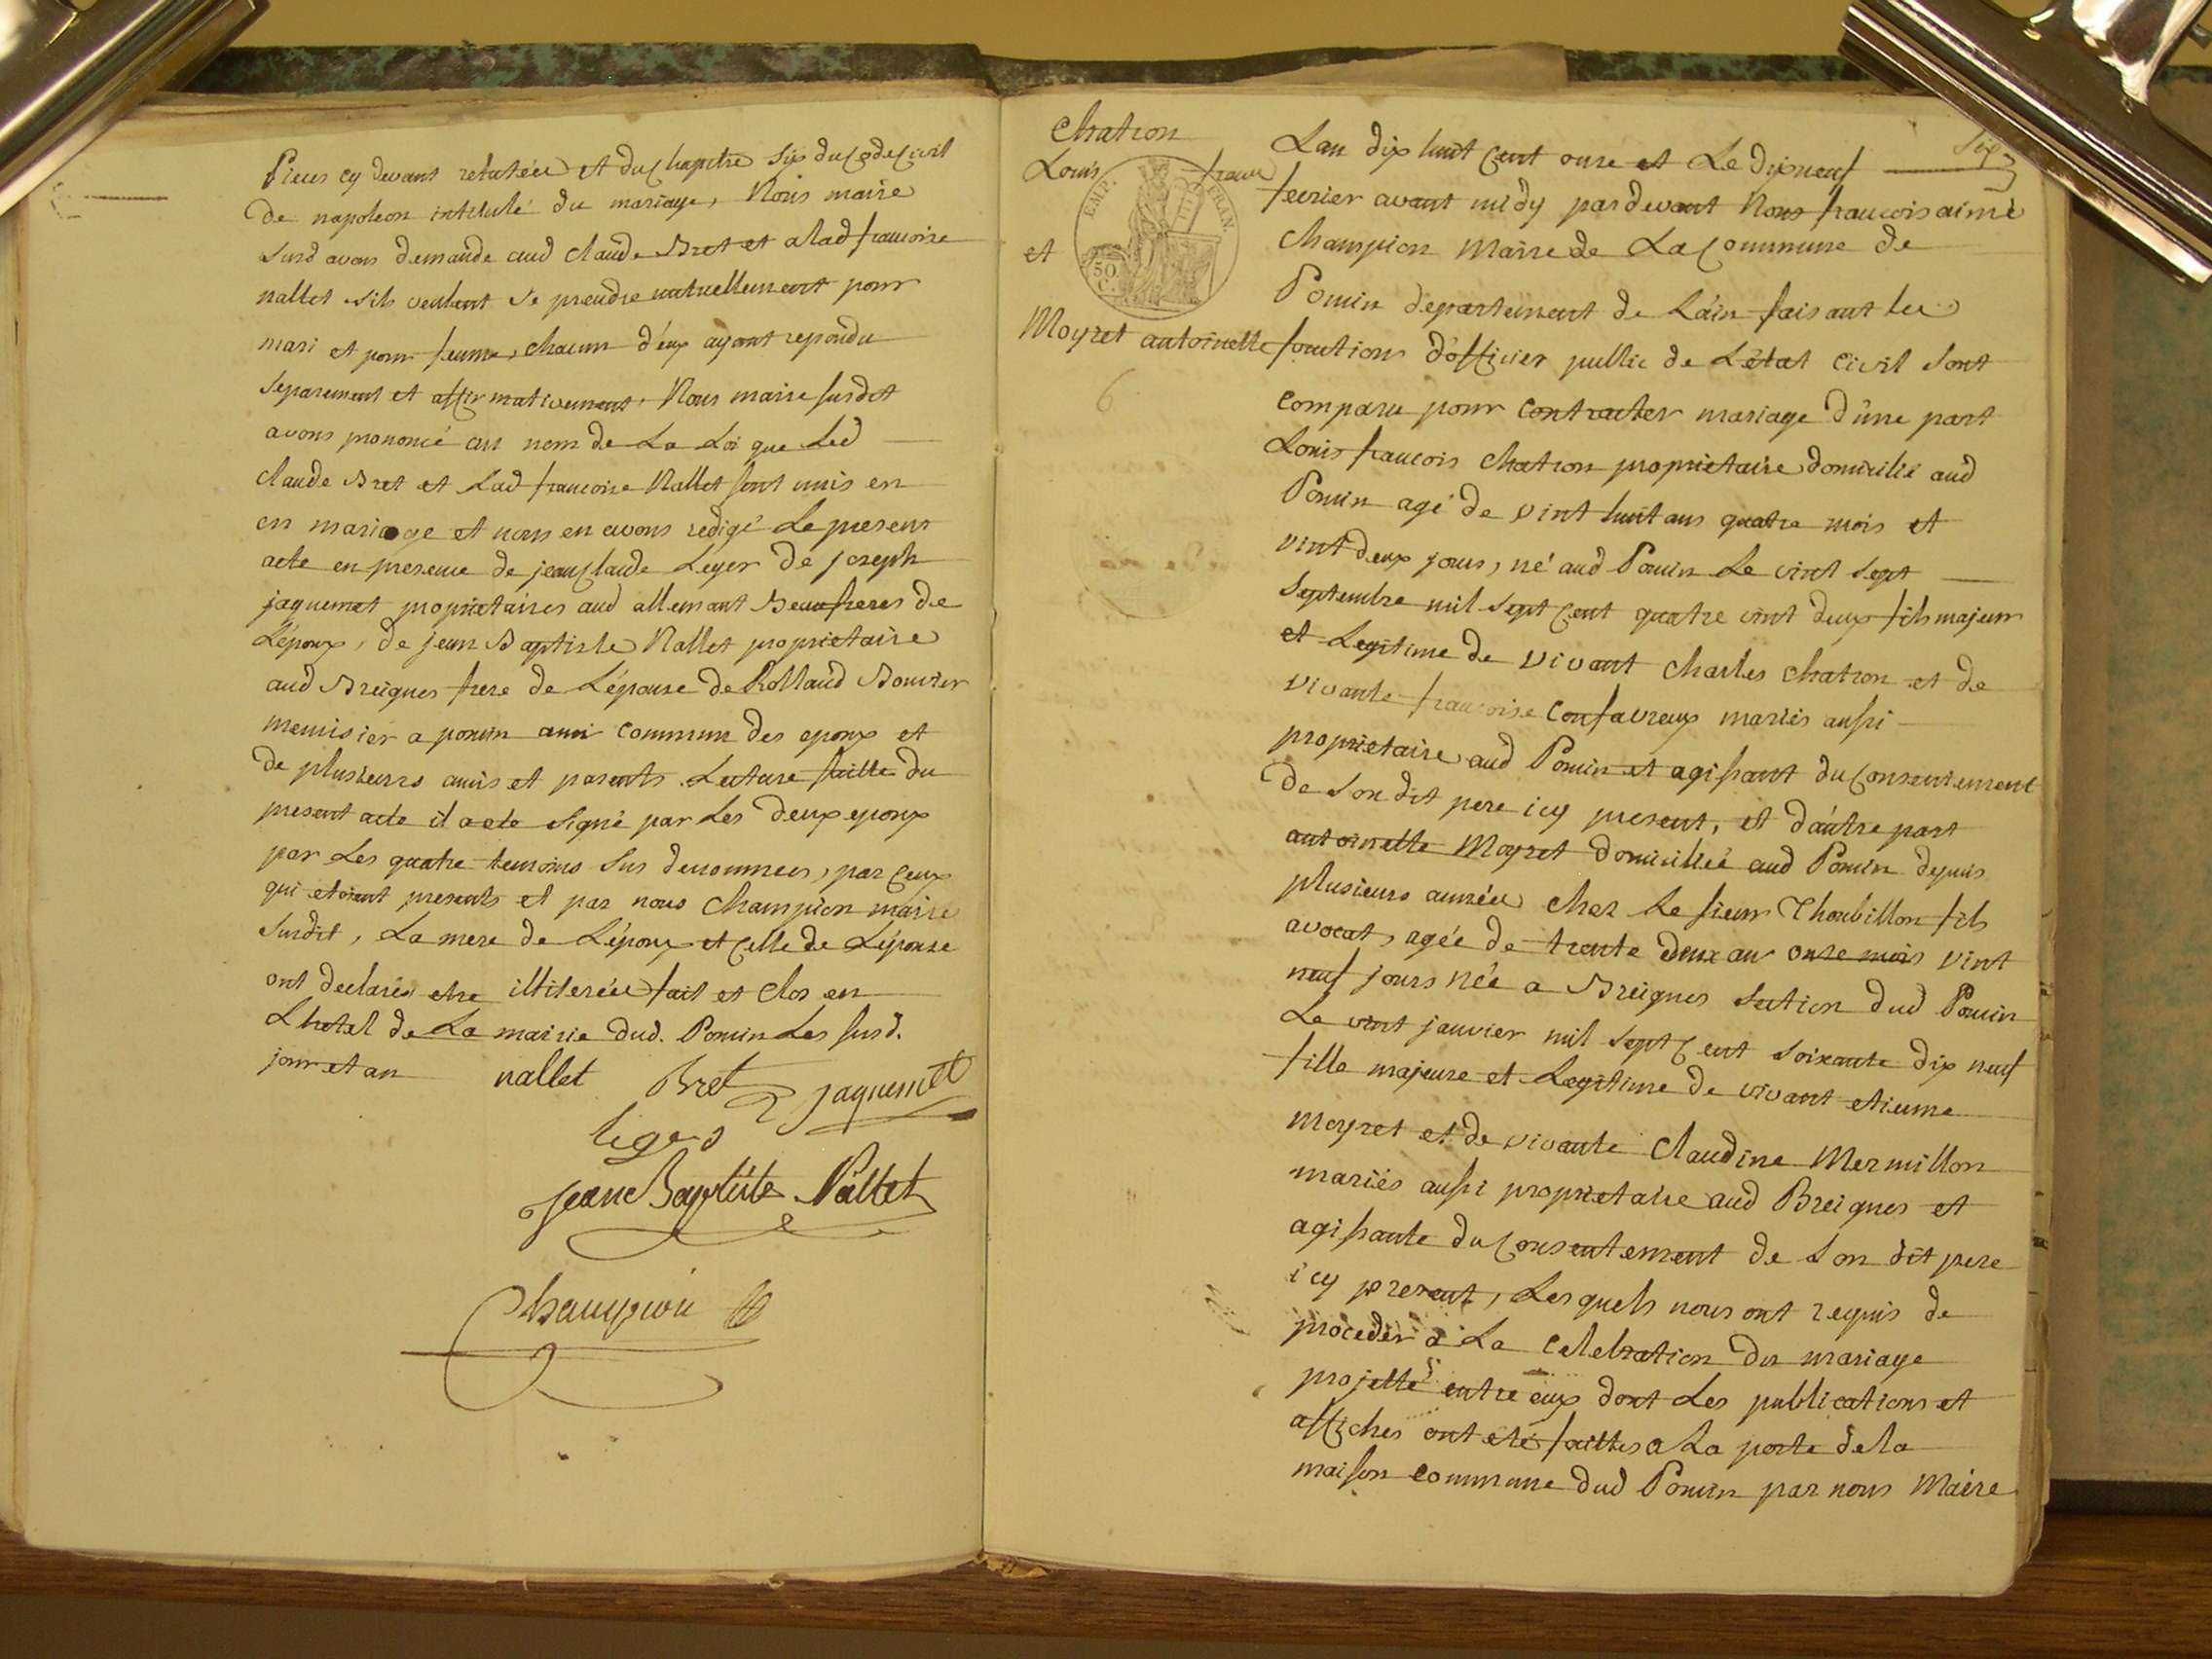 Pieces cy devant relatées et du Chapitre Six du Code Civil
De napoleon intitulé du mariage, Nous maire
Susd avons demandé aud Claude Bret et a lad francoise
nallet s'ils veulent se prendre mutuellement pour
mari et pour femme, chacun d'eux ayant repondu
Separement et affirmativement, Nous maire susdit
avons prononcé au nom de La Loi que Led
Claude Bret et Lad francoise Nallet sont unis en
en mariage et nous en avons redigé Le present
acte en presence de jean Claude Leger de joseph
jaquemet proprietaires aud allemant Beaufreres de
L'époux, de jean Baptiste Nallet proprietaire
aud Breignes frere de L'épouse de Rolland Bouvier
menuisier a poncin ami commun des epoux et
de plusieurs amis et parents. Lecture faitte du
present acte il a ete signé par Les deux epoux
par Les quatre temoins sus denommees, par ceux
qui etoient presents et par nous Champion maire
Susdit, La mere de L'époux et Celle de L'épouse
ont declarés etre illiterées fait et Clos en
L'hotel de La mairie dud. Poncin Les susd.
jour et an
nallet Bret jaquemet
liger
jeane Baptiste Nallet
Champion
Six
Chatron
Louis franc
EMP. FRAN.
50 C.
et
Moyret antoinette
6
Lan dix huit Cent onze et Le dixneuf
fevrier avant midy pardevant Nous francois aimé
Champion Maire de La Commune de
Poncin departement de L'ain faisant les
fonctions d'officier public de L'état Civil Sont
comparu pour contracter mariage d'une part
Louis francois Chatron proprietaire domicilié aud
Poncin agé de vint huit ans quatre mois et
vint deux jours, né aud Poncin Le vint Sept
Septembre mil Sept Cent quatre vint deux fils majeur
et Legitime de vivant Charles Chatron et de
vivante francoise Confavreux mariés aussi
proprietaire aud Poncin et agissant du Consentement
de Son dit pere icy present, et d'autre part
antoinette Moyret domicilliée aud Poncin depuis
plusieurs années chez Le sieur Thoubillon fils
avocat, agée de trente deux an onze mois vint
neuf jours née a Breignes Section dud Poncin
Le vint janvier mil Sept Cent Soixante dix neuf
fille majeure et Legitime de vivant etienne
moyret et de vivante Claudine Mermillon
mariés aussi proprietaire aud Breignes et
agissante du Consentement de Son dit pere
icy present, Lesquels nous ont requis de
proceder a La Celebration du mariage
projetté entre eux dont Les publications et
affiches ont eté faittes a La porte de la
maison commune dud Poncin par nous Maire